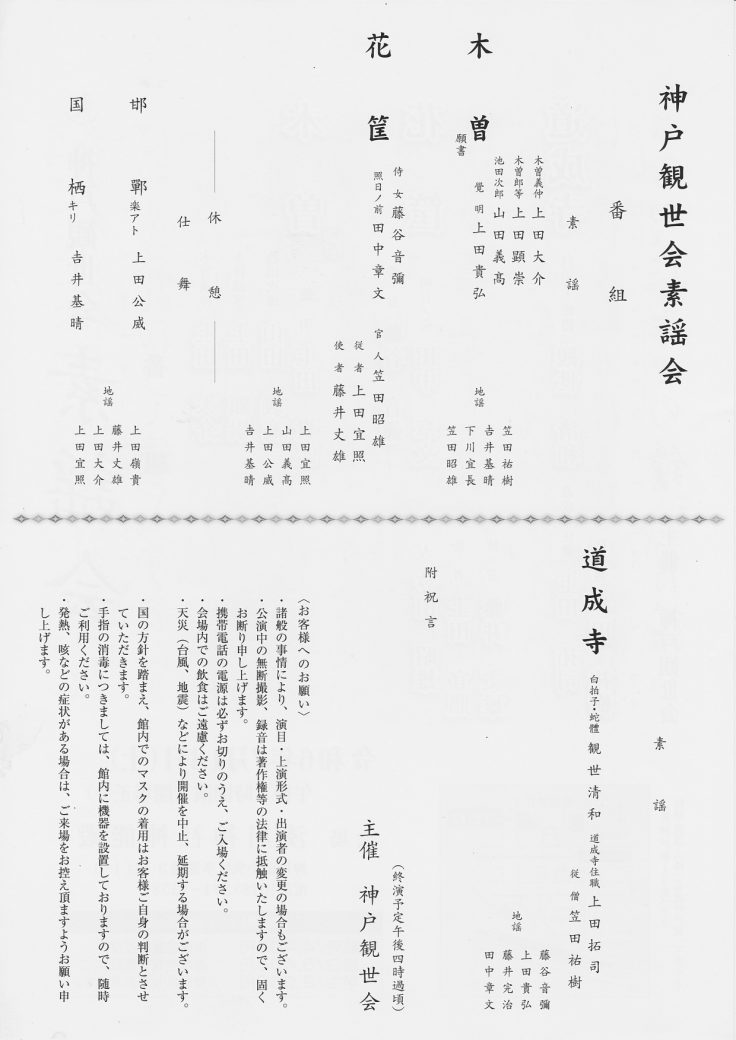 神戸観世会素謡会
番組
素謡
木曽
願書
木曽義仲 上田大介
木曽郎等 上田顕崇
池田次郎 山田義高
覺明 上田貴弘
地謡
笠田祐樹
吉井基晴
下川宜長
笠田昭雄
花筐
侍女 藤谷音彌
照日ノ前 田中章文
官人 笠田昭雄
従者 上田宜照
使者 藤井丈雄
地謡
上田宜照
山田義高
上田公威
吉井基晴
休憩
仕舞
邯鄲 楽アト 上田公威
国栖 キリ 吉井基晴
地謡
上田嶺貴
藤井丈雄
上田大介
上田宜照
素謡
道成寺
白拍子・蛇體 観世清和
道成寺住職 上田拓司
従僧 笠田祐樹
地謡
藤谷音彌
上田貴弘
藤井完治
田中章文
附祝言
(終演予定午後四時過頃)
主催 神戸観世会
〈お客様へのお願い〉
・諸般の事情により、演目・上演形式・出演者の変更の場合もございます。
・公演中の無断撮影、録音は著作権等の法律に抵触いたしますので、固く
お断り申し上げます。
・携帯電話の電源は必ずお切りのうえ、ご入場ください。
・会場内での飲食はご遠慮ください。
・天災(台風、地震)などにより開催を中止、延期する場合がございます。
・国の方針を踏まえ、館内でのマスクの着用はお客様ご自身の判断とさせ
ていただきます。
・手指の消毒につきましては、館内に機器を設置しておりますので、随時
ご利用ください。
・発熱、咳などの症状がある場合は、ご来場をお控え頂ますようお願い申
し上げます。